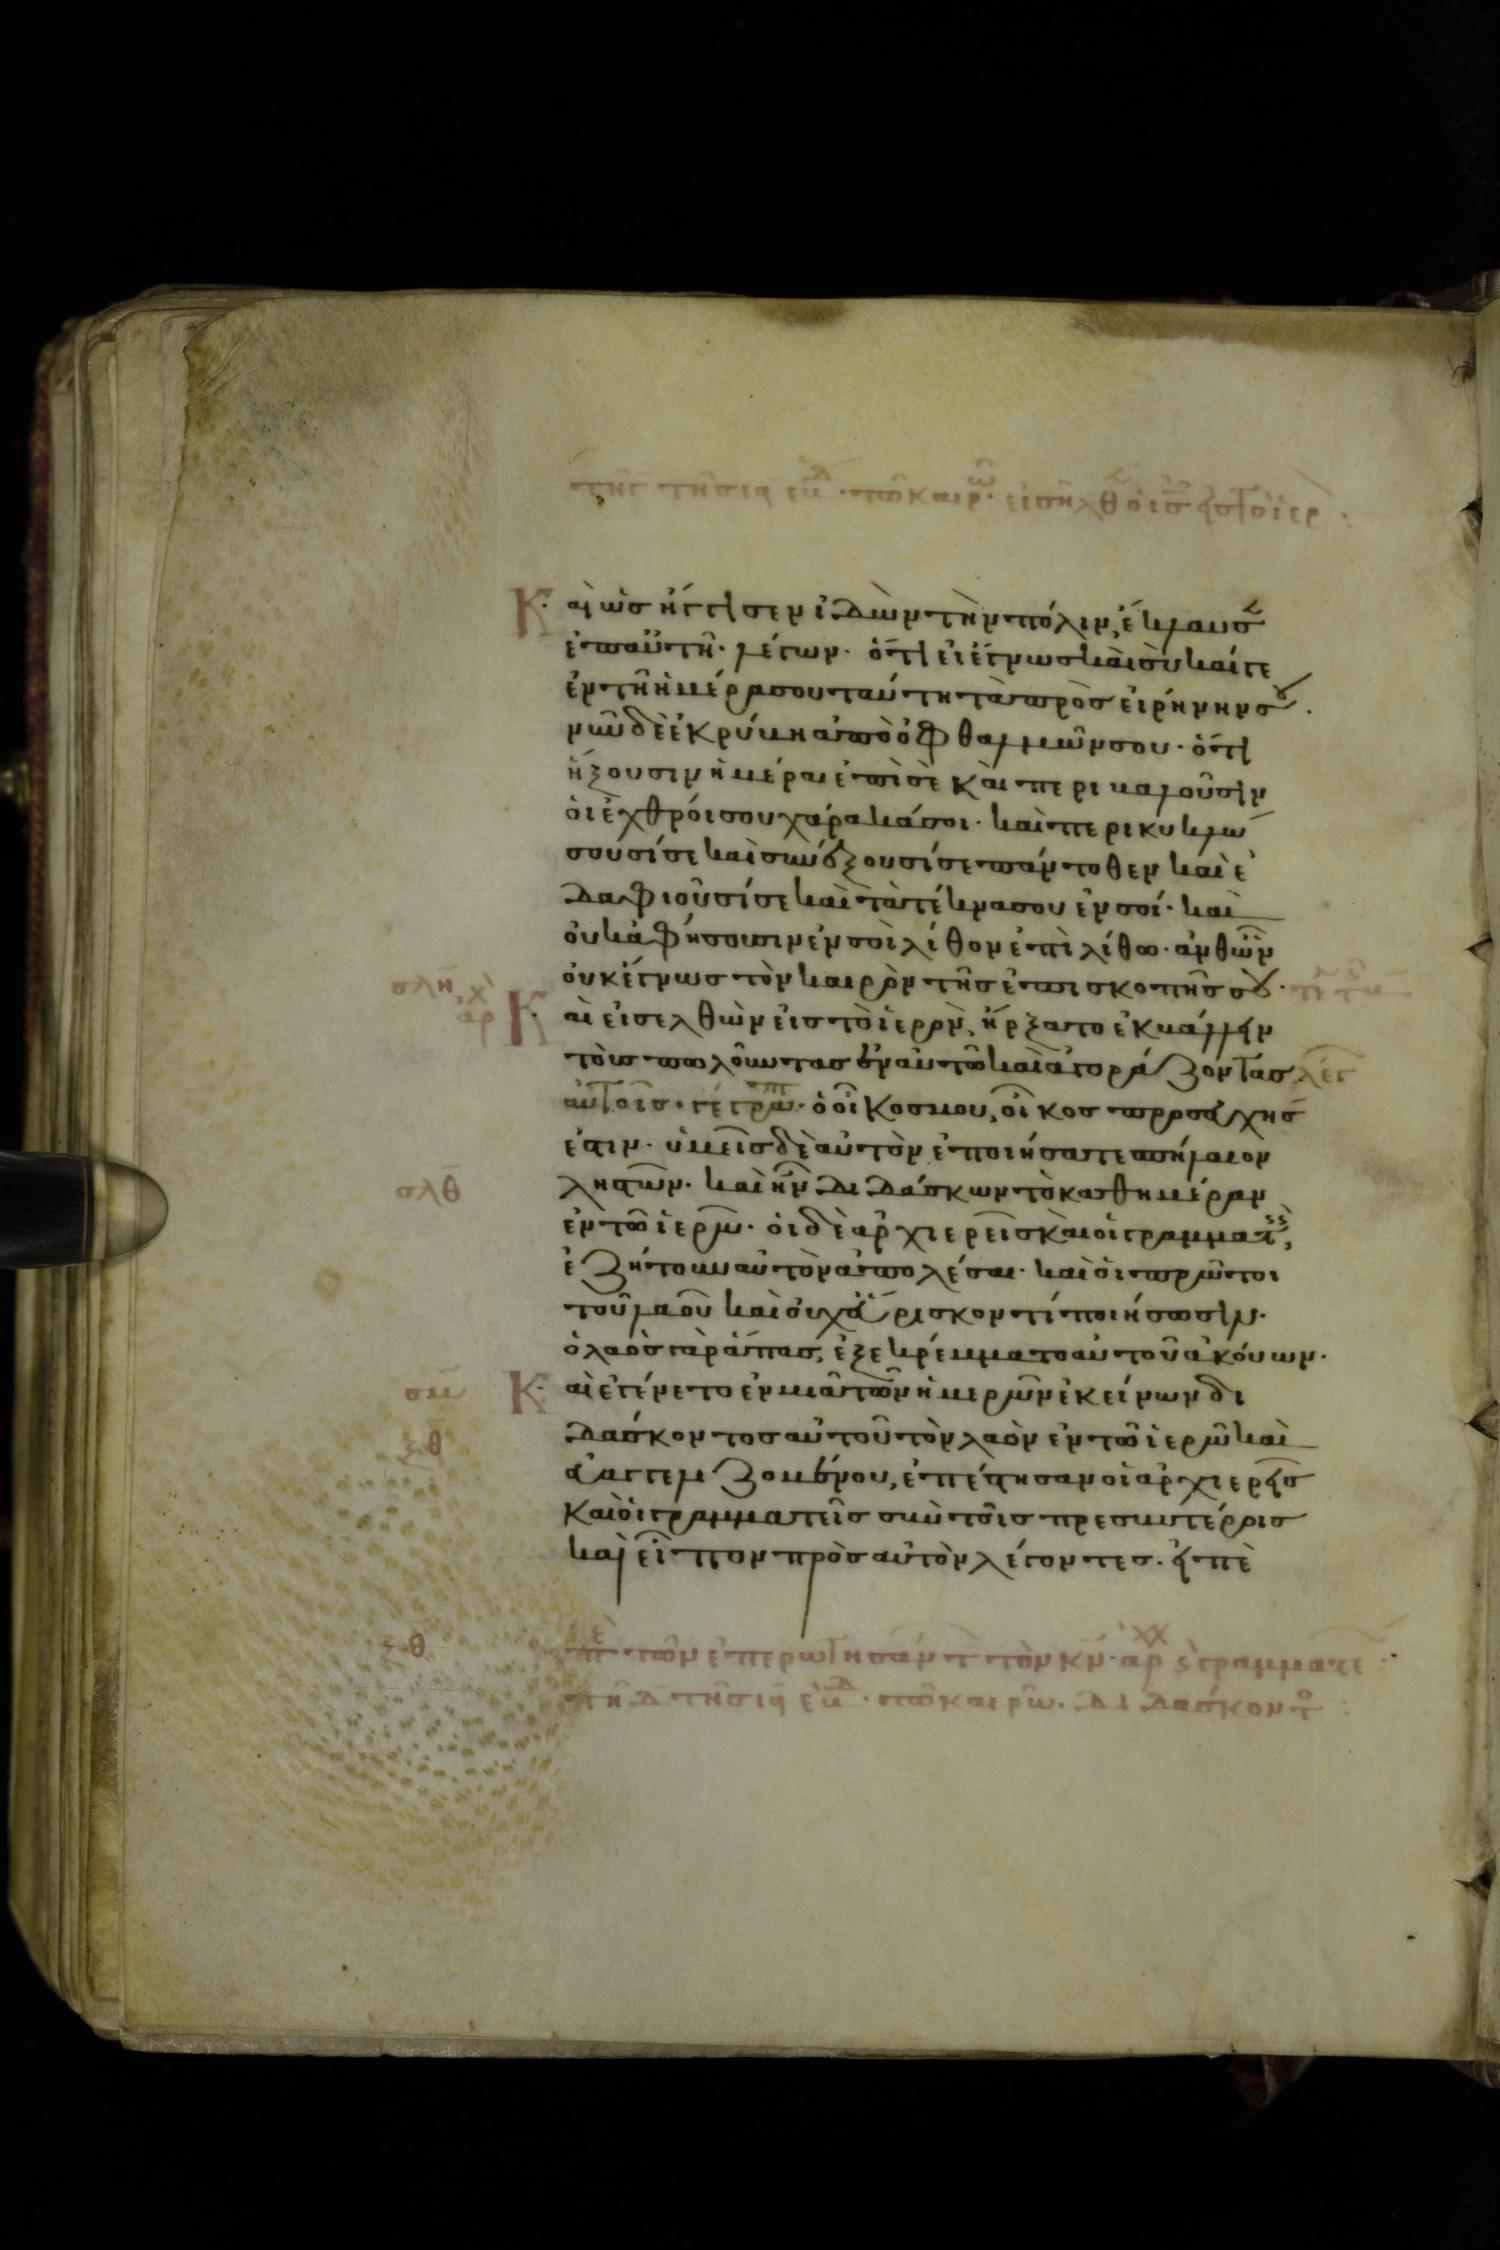 τῆς τῆς ιϛ ἑβδ. τῷ καιρῷ. εἰσῆλθ ὁ ις εἰς τὸ ἱερ.
Καὶ ὡς ἤγγισεν ἰδὼν τὴν πόλιν, ἔκλαυσ
ἐπ αὐτῆ. λέγων. ὅτι εἰ ἔγνως καὶ σὺ καί γε
ἐν τῆ ἡμέρα σου ταύτη τὰ πρὸς εἰρήνην σου.
νῦν δὲ ἐκρύβη ἀπὸ ὀφθαλμῶν σου. ὅτι
ἥξουσιν ἡμέραι ἐπὶ σὲ καὶ περιβαλοῦσιν
ὁι ἐχθρόι σου χάρακά σοι. καὶ περικυκλώ
σουσί σε καὶ συνέξουσί σε πάντοθεν καὶ ἐ
δαφιοῦσί σε καὶ τὰ τέκνα σου ἐν σοί. καὶ
ὀυκ ἀφήσουσιν ἐν σοὶ λίθον ἐπὶ λίθω. ἀνθ ὧν
ὀυκ ἔγνως τὸν καιρὸν τῆς ἐπισκοπῆς σου.
σλη
ἀρχ
Καὶ εἰσελθὼν εἰς τὸ ἱερὸν, ἤρξατο ἐκβάλλειν
τοὺς πωλοῦντας ἐν αὐτῶ καὶ ἀγοράζοντας λέγ
αὐτοῖς. γέγραπτ. ὁ οἶκος μου, οἶκος προσευχῆς
ἐστιν. ὑμεῖς δὲ αὐτὸν ἐποιήσατε σπήλαιον
σλθ
ληστῶν. καὶ ἦν διδάσκων τὸ καθημέραν
ἐν τῶ ἱερῶ. ὁι δὲ ἀρχιερεῖς καὶ οἱ γραμματ,
ἐζήτουν αὐτὸν ἀπολέσαι. καὶ ὁι πρῶτοι
τοῦ λαοῦ καὶ ὀυχ εὕρισκον τί ποιήσωσιν.
ὁ λαὸς γὰρ ἅπας, ἐξεκρέμματο αὐτοῦ ἀκόυων.
σμ
Καὶ ἐγένετο ἐν μιᾶ τῶν ἡμερῶν ἐκείνων δι
ξθ
δάσκοντος αὐτοῦ τὸν λαὸν ἐν τῶ ἱερῶ καὶ
ἐυαγγελιζομένου, ἐπέστησαν οἱ ἀρχιερεῖς
καὶ ὁι γραμματεῖς σὺν τοῖς πρεσβυτέροις
καὶ εἶπον πρὸς αὐτὸν λέγοντες. εἰπὲ
ξθ
πε τῶν ἐπερωτησάντ τὸν κν. ἀρχ ϛ γραμματε
τῆ δ τῆς ιϛ ἑβδ. τῶ καιρῶ. διδάσκοντο